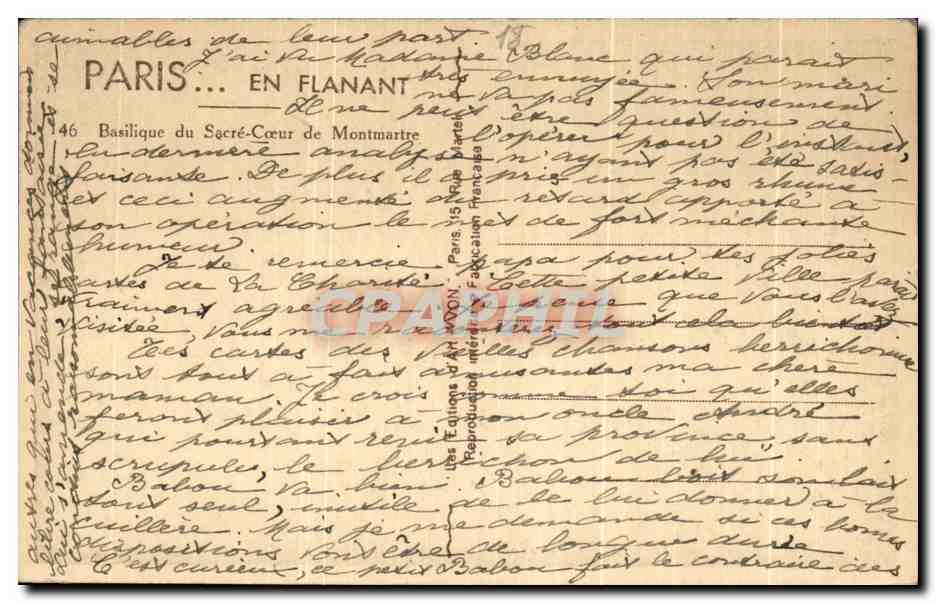 aimables de leur part
18
J'ai vu Madame Blanc qui parait
PARIS... EN FLANANT
très ennuyée. Son mari
ne va pas fameusement
Il ne peut être question de
46 Basilique du Sacré-Cœur de Montmartre
l'opérer pour l'instant,
la dernière analyse n'ayant pas été satis-
faisante. De plus il a pris un gros rhume
et ceci augmenté du retard apporté à
son opération le met de fort méchante
humeur.
Je te remercie Papa pour tes jolies
cartes de La Charité. Cette petite ville parait
vraiment agréable que vous l'avez
visitée, vous me raconterez tout cela bientôt
Tes cartes des Vieilles chansons berrichonnes
sont tout à fait amusantes ma chère
maman. Je crois comme toi qu'elles
feront plaisir à mon oncle André
qui pourtant renie sa province, sans
scrupule, le berrichon de lui
Babou va bien. Babou boit son lait
tout seul, inutile de le lui donner à la
cuillère. Mais je me demande si ces bonnes
dispositions vont être de longue durée
C'est curieux, ce petit Babou fait le contraire des
autres qui en vacances donnent
libre cours à leur fantaisie
Les Editions d'Art YVON, Paris, 15, Rue Martel
Reproduction interdite Fabrication Française
CPAPHIL